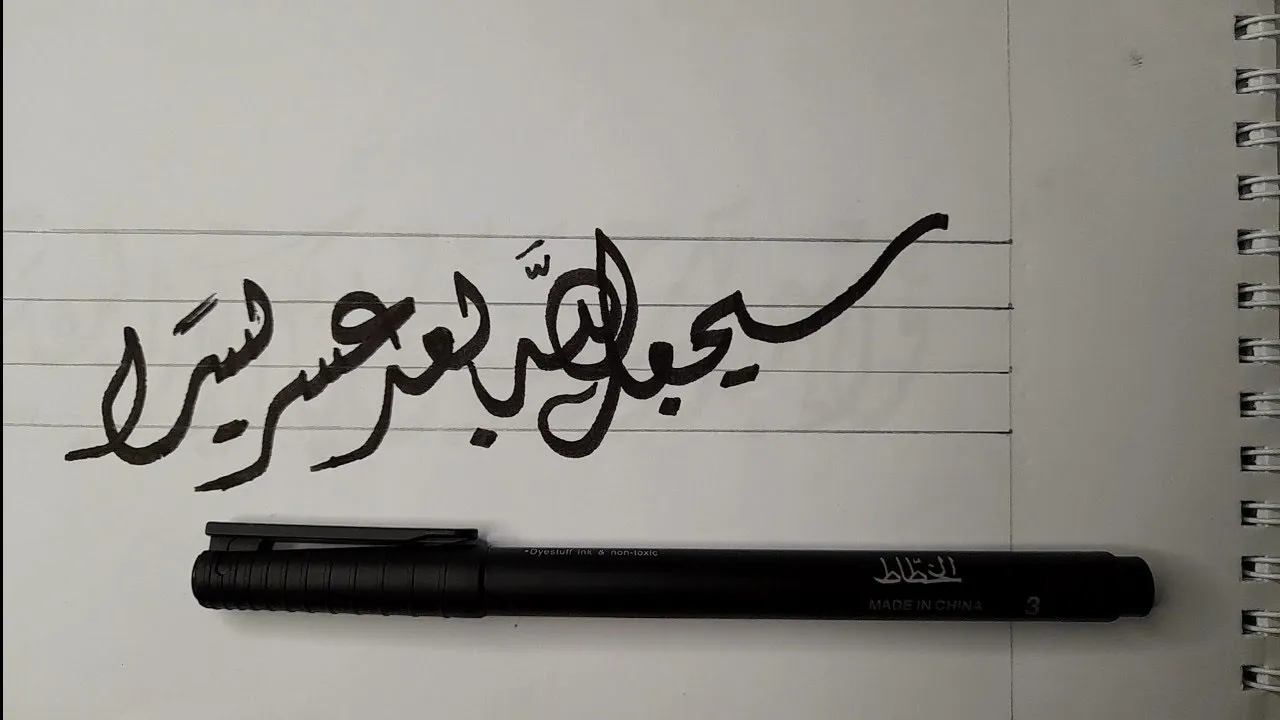 سيجعل الله بعد عسر يسرًا
•Dyestuff ink & non-toxic
الخطّاط
MADE IN CHINA 3